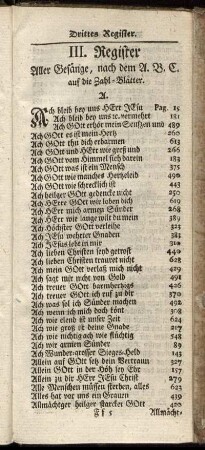 Drittes Register.
III. Register
Aller Gesänge, nach dem A. B. C.
auf die Zahl-Blätter.
A.
Ach bleib bey uns HErr JEsu Pag. 15
Ach bleib bey uns ꝛc. vermehrt 181
Ach GOtt erhör mein Seufzen und 489
Ach GOtt es ist mein Hertz 260
Ach GOtt thu dich erbarmen 613
Ach GOtt und HErr wie groß und 266
Ach GOtt vom Himmel sieh darein 183
Ach GOtt was ist ein Mensch 375
Ach GOtt wie manches Hertzeleid 490
Ach GOtt wie schrecklich ist 43
Ach heiliger GOtt gedencke nicht 250
Ach HErre GOtt wir loben dich 619
Ach HErr mich armen Sünder 268
Ach HErr wie lange wilt du mein 389
Ach Höchster GOtt verleihe 323
Ach JEsu mehrter Gnaden 381
Ach JEsus lebt in mir 310
Ach lieben Christen seyd getrost 440
Ach lieben Christen trauret nicht 628
Ach mein GOtt verlaß mich nicht 220
Ach sagt mir nicht von Gold 491
Ach treuer GOtt barmhertzogs 601
Ach treuer GOtt ich ruf zu dir 370
Ach was sol ich Sünder machen 252
Ach wenn ich mich doch könt 308
Ach wie elend ist unser Zeit 624
Ach wie groß ist deine Gnade 217
Ach wie nichtig ach wie flüchtig 548
Ach wir armen Sünder 89
Ach Wunder-grosser Sieges-Held 143
Allein auf GOtt setz dein Vertraun 327
Allein GOtt in der Höh sey Ehr 160
Allein zu dir HErr JEsu Christ 279
Alle Menschen müssen sterben, alles 623
Alles hat vor uns ein Grauen 419
Allmächtiger heilger starcker GOtt 400
Ff 5 Allmächt-